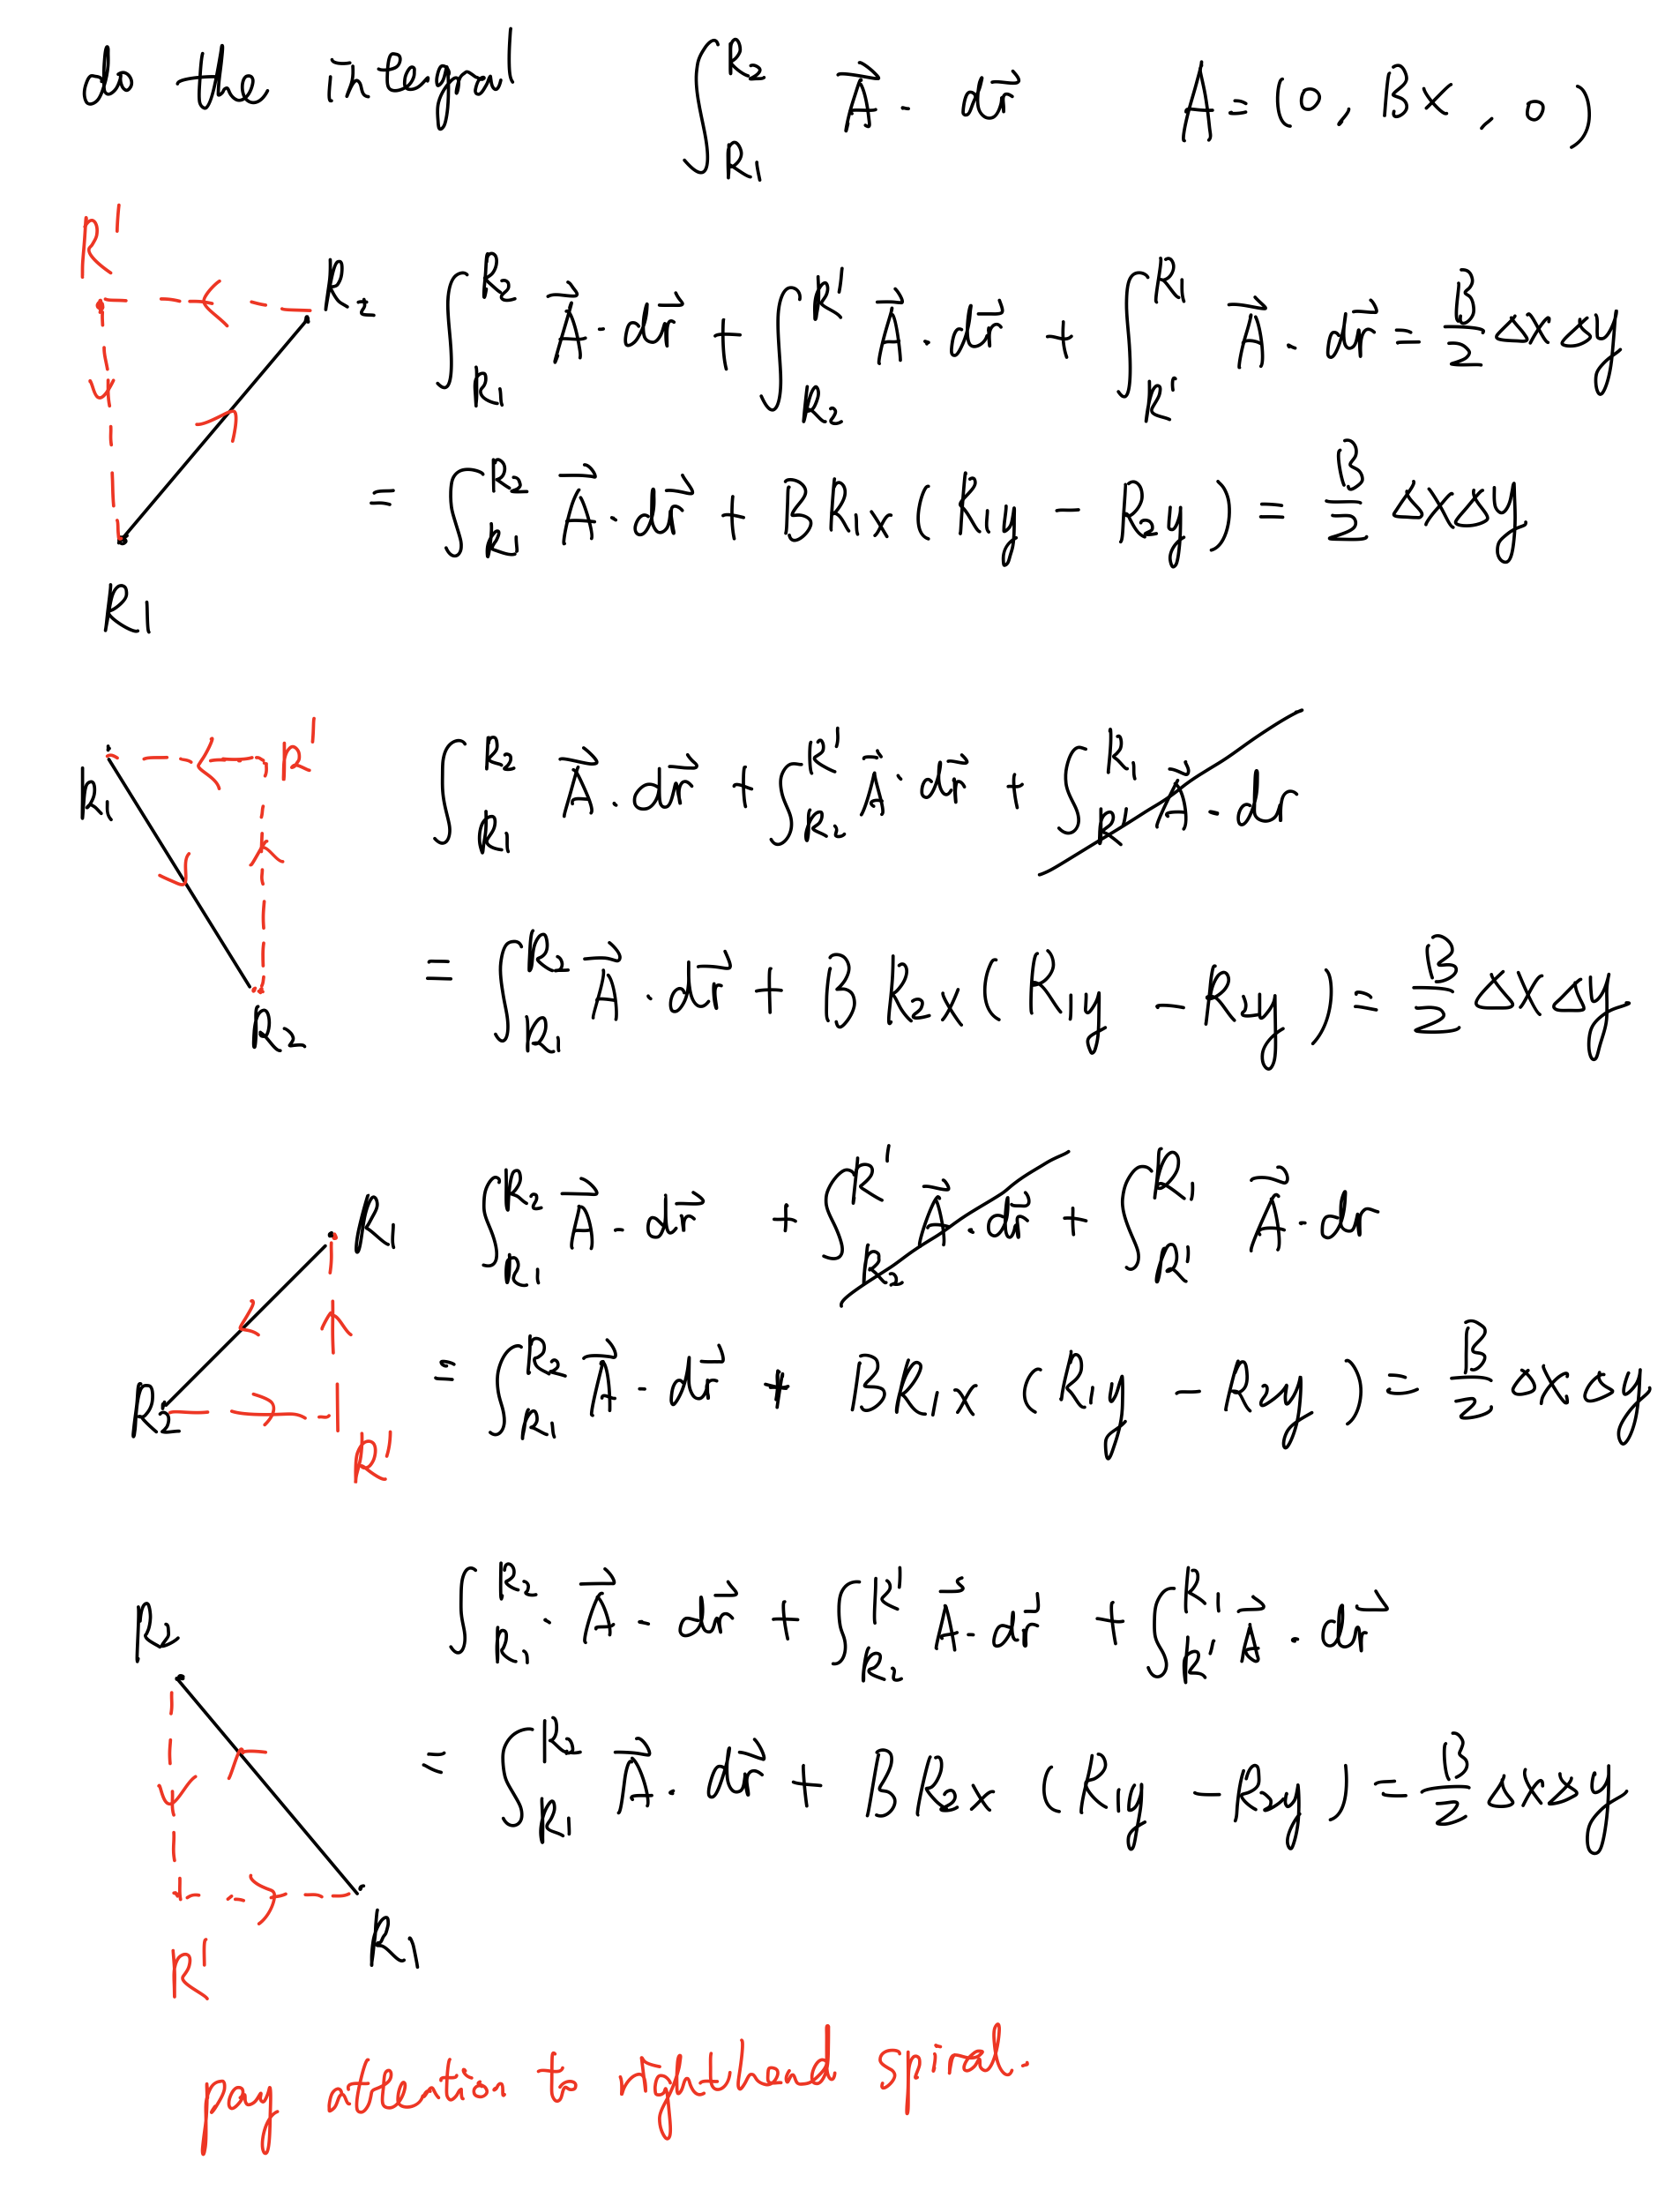 do the integral ∫_{R1}^{R2} A⃗ · dr⃗ A = (0, Bx, 0)
R' R2 ∫_{R1}^{R2} A⃗ · dr⃗ + ∫_{R2}^{R'} A⃗ · dr⃗ + ∫_{R'}^{R1} A⃗ · dr⃗ = B/2 ΔxΔy
= ∫_{R1}^{R2} A⃗ · dr⃗ + BR1x (R1y - R2y) = B/2 ΔxΔy
R1
R1 R' ∫_{R1}^{R2} A⃗ · dr⃗ + ∫_{R2}^{R'} A⃗ · dr⃗ + ∫_{R'}^{R1} A⃗ · dr
= ∫_{R1}^{R2} A⃗ · dr⃗ + BR2x (R1y - R2y) = B/2 ΔxΔy
R2
R1 ∫_{R1}^{R2} A⃗ · dr⃗ + ∫_{R2}^{R'} A⃗ · dr⃗ + ∫_{R'}^{R1} A⃗ · dr
R2 = ∫_{R1}^{R2} A⃗ · dr⃗ + BR1x (R1y - R2y) = B/2 ΔxΔy
R'
R2 ∫_{R1}^{R2} · A⃗ · dr⃗ + ∫_{R2}^{R'} A⃗ · dr⃗ + ∫_{R'}^{R1} A⃗ · dr⃗
= ∫_{R1}^{R2} A⃗ · dr⃗ + BR2x (R1y - R2y) = B/2 ΔxΔy
R1
R'
pay attention to righthand spiral.